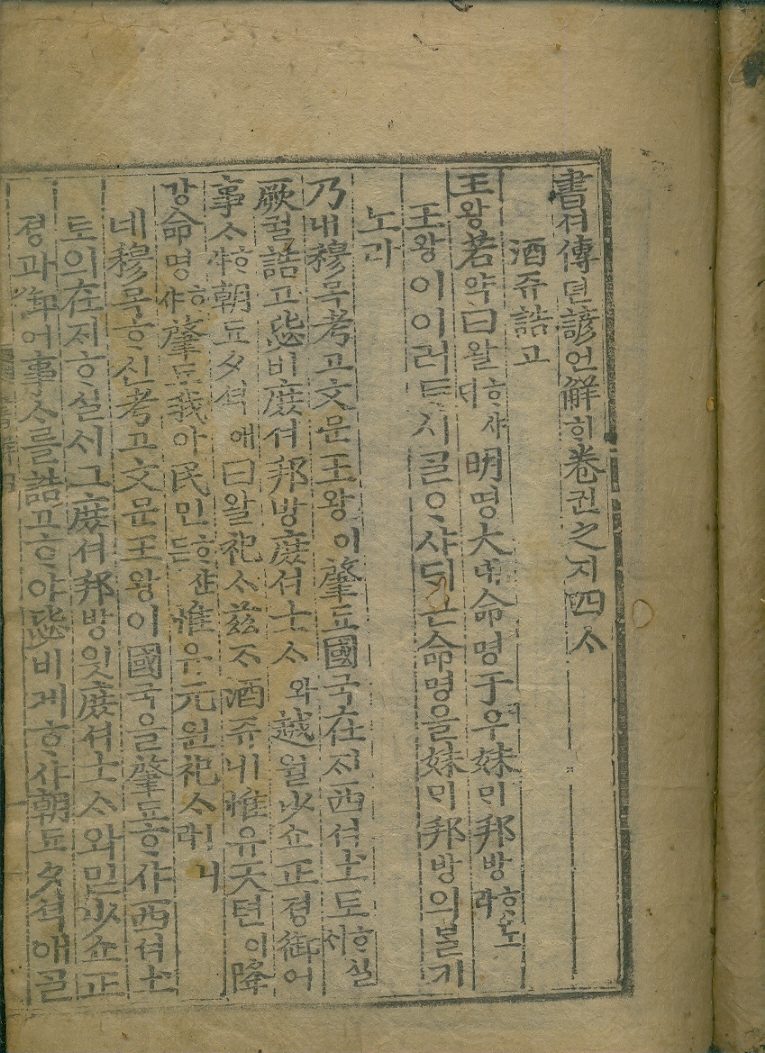 書셔傳뎐諺언解ᄒᆡ卷권之지四ᄉᆞ
酒쥬誥고
王왕若약曰왈ᄒᆞ샤ᄃᆡ明명大대命명于우妹ᄆᆡ邦방ᄒᆞ노라
王왕이이러ᄐᆞ시ᄀᆞᆯᄋᆞ샤ᄃᆡ큰命명을妹ᄆᆡ邦방의ᄇᆞᆯ기
노라
乃내穆목考고文문王왕이肇됴國국在ᄌᆡ西셔土토ᄒᆞ실ᄉᆡ
厥궐誥고毖비庶셔邦방庶셔士ᄉᆞ와越월少쇼正졍御어
事ᄉᆞᄒᆞ샤朝됴夕셕애曰왈祀ᄉᆞ玆ᄌᆞ酒쥬ㅣ니惟유天텬이降
강命명ᄒᆞ샤肇됴我아民민ᄒᆞ샨ᄃᆞᆫ惟유元원祀ᄉᆞㅣ니라
네穆목ᄒᆞ신考고文문王왕이國국을肇됴ᄒᆞ샤西셔土
토의在ᄌᆡᄒᆞ실ᄉᆡ그庶셔邦방잇庶셔士ᄉᆞ와밋少쇼正
졍과御어事ᄉᆞ를誥고ᄒᆞ야毖비케ᄒᆞ샤朝됴夕셕애ᄀᆞᆯ